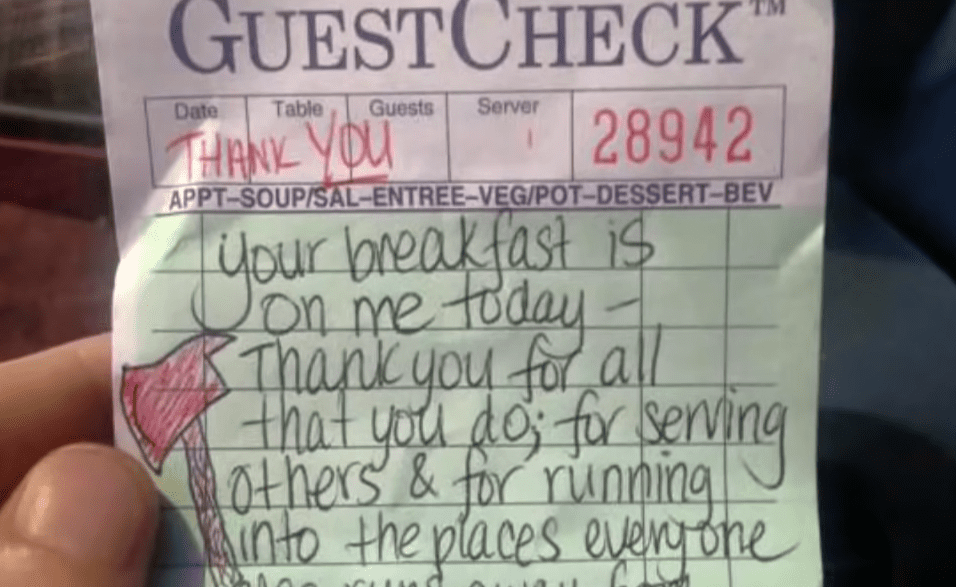 GUESTCHECK™
Date Table Guests Server
THANK YOU 28942
APPT–SOUP/SAL–ENTREE–VEG/POT–DESSERT–BEV
your breakfast is
on me today –
Thank you for all
that you do; for serving
others & for running
into the places everyone